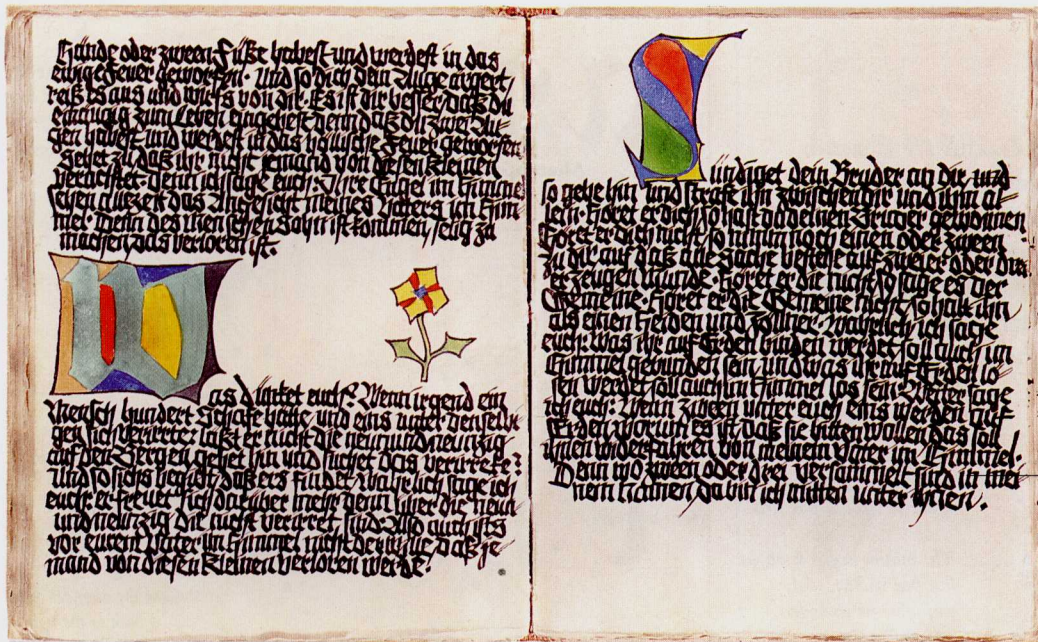 Hände oder zween Füße habest und werdest in das
ewige Feuer geworfen. Und so dich dein Auge ärgert,
reiß es aus und wirfs von dir. Es ist dir besser, daß du
einäugig zum Leben eingehest, denn daß du zwei Au-
gen habest und werdest in das höllische Feuer geworfen.
Sehet zu, daß ihr nicht jemand von diesen Kleinen
verachtet. Denn ich sage euch: Ihre Engel im Himmel
sehen allezeit das Angesicht meines Vaters im Him-
mel. Denn des Menschen Sohn ist kommen, selig zu
machen, das verloren ist.
Was dünket euch? Wenn irgend ein
Mensch hundert Schafe hätte und eins unter densel-
gen sich verirrte: läßt er nicht die neunundneunzig
auf den Bergen, gehet hin und suchet das verirrete?
Und so sichs begibt, daß ers findet, wahrlich sage ich
euch: er freuet sich darüber mehr denn über die neun
und neunzig, die nicht verirret sind. Also auch ists
vor eurem Vater im Himmel nicht der Wille, daß je-
mand von diesen Kleinen verloren werde.
Sündiget dein Bruder an dir, und
so gehe hin und strafe ihn zwischen dir und ihm al-
lein. Höret er dich, so hast du deinen Bruder gewonnen.
Höret er dich nicht, so nimm noch einen oder zween
zu dir, auf daß alle Sache bestehe auf zweier oder drei-
er Zeugen Munde. Höret er die nicht, so sage es der
Gemeine. Höret er die Gemeine nicht, so halt ihn
als einen Heiden und Zöllner. Wahrlich, ich sage
euch: Was ihr auf Erden binden werdet, soll auch im
Himmel gebunden sein, und was ihr auf Erden lö-
sen werdet, soll auch im Himmel los sein. Weiter sage
ich euch: Wenn zween unter euch eins werden auf
Erden, worum es ist, daß sie bitten wollen, das soll
ihnen widerfahren von meinem Vater im Himmel.
Denn wo zween oder drei versammelt sind in mei-
nem Namen, da bin ich mitten unter ihnen.